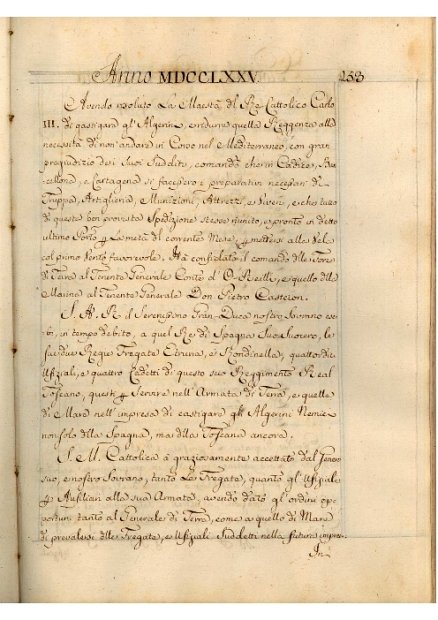 Anno MDCCLXXV. 258
Avendo risoluto La Maestà del Re Cattolico Carlo
III. di gastigare gl' Algerini, e ridurre quella Reggenza alla
necessità di non andare in Corso nel Mediterraneo, con gran
pregiudizio dei Suoi Sudditi, comandò che in Cadice, Bar
cellona, e Cartagena si facessero i preparativi necessari di
Truppa, Artiglieria, Munizioni, Attrezzi, e Viveri, e che tutto
di questa ben provvista Spedizione stesse riunito, e pronto in detto
ultimo Porto p La metà del corrente Mese, p mettersi alla Vela
col primo Vento favorevole. Ha confidato il comando delle Forze
di Terra al Tenente Generale Conte d' O-Reilli, e quello della
Marina al Tenente Generale Don Pietro Casteson.
S. A. R. il Serenissimo Gran-Duca nostro Sovrano esi
bì, in tempo debito, a quel Re di Spagna Suo Suocero, le
sue due Regie Fregate Etruria, e Rondinella, quattordici
Ufiziali, e quattro Cadetti di questo suo Reggimento Real
Toscano, questi p Servire nell' Armata di Terra, e quelle
di Mare nell' impresa di castigare gli Algerini Nemici
non solo della Spagna, ma della Toscana ancora.
S. M. Cattolica à graziosamente accettato dal Genero
suo, e nostro Sovrano, tanto Le Fregate, quanto gl' Ufiziali
p Ausiliari alla sua Armata, avendo dato gl' ordini op
portuni tanto al Generale di Terra, come a quello di Mare
di prevalersi delle Fregate, e Ufiziali Suddetti nella futura impre-
In